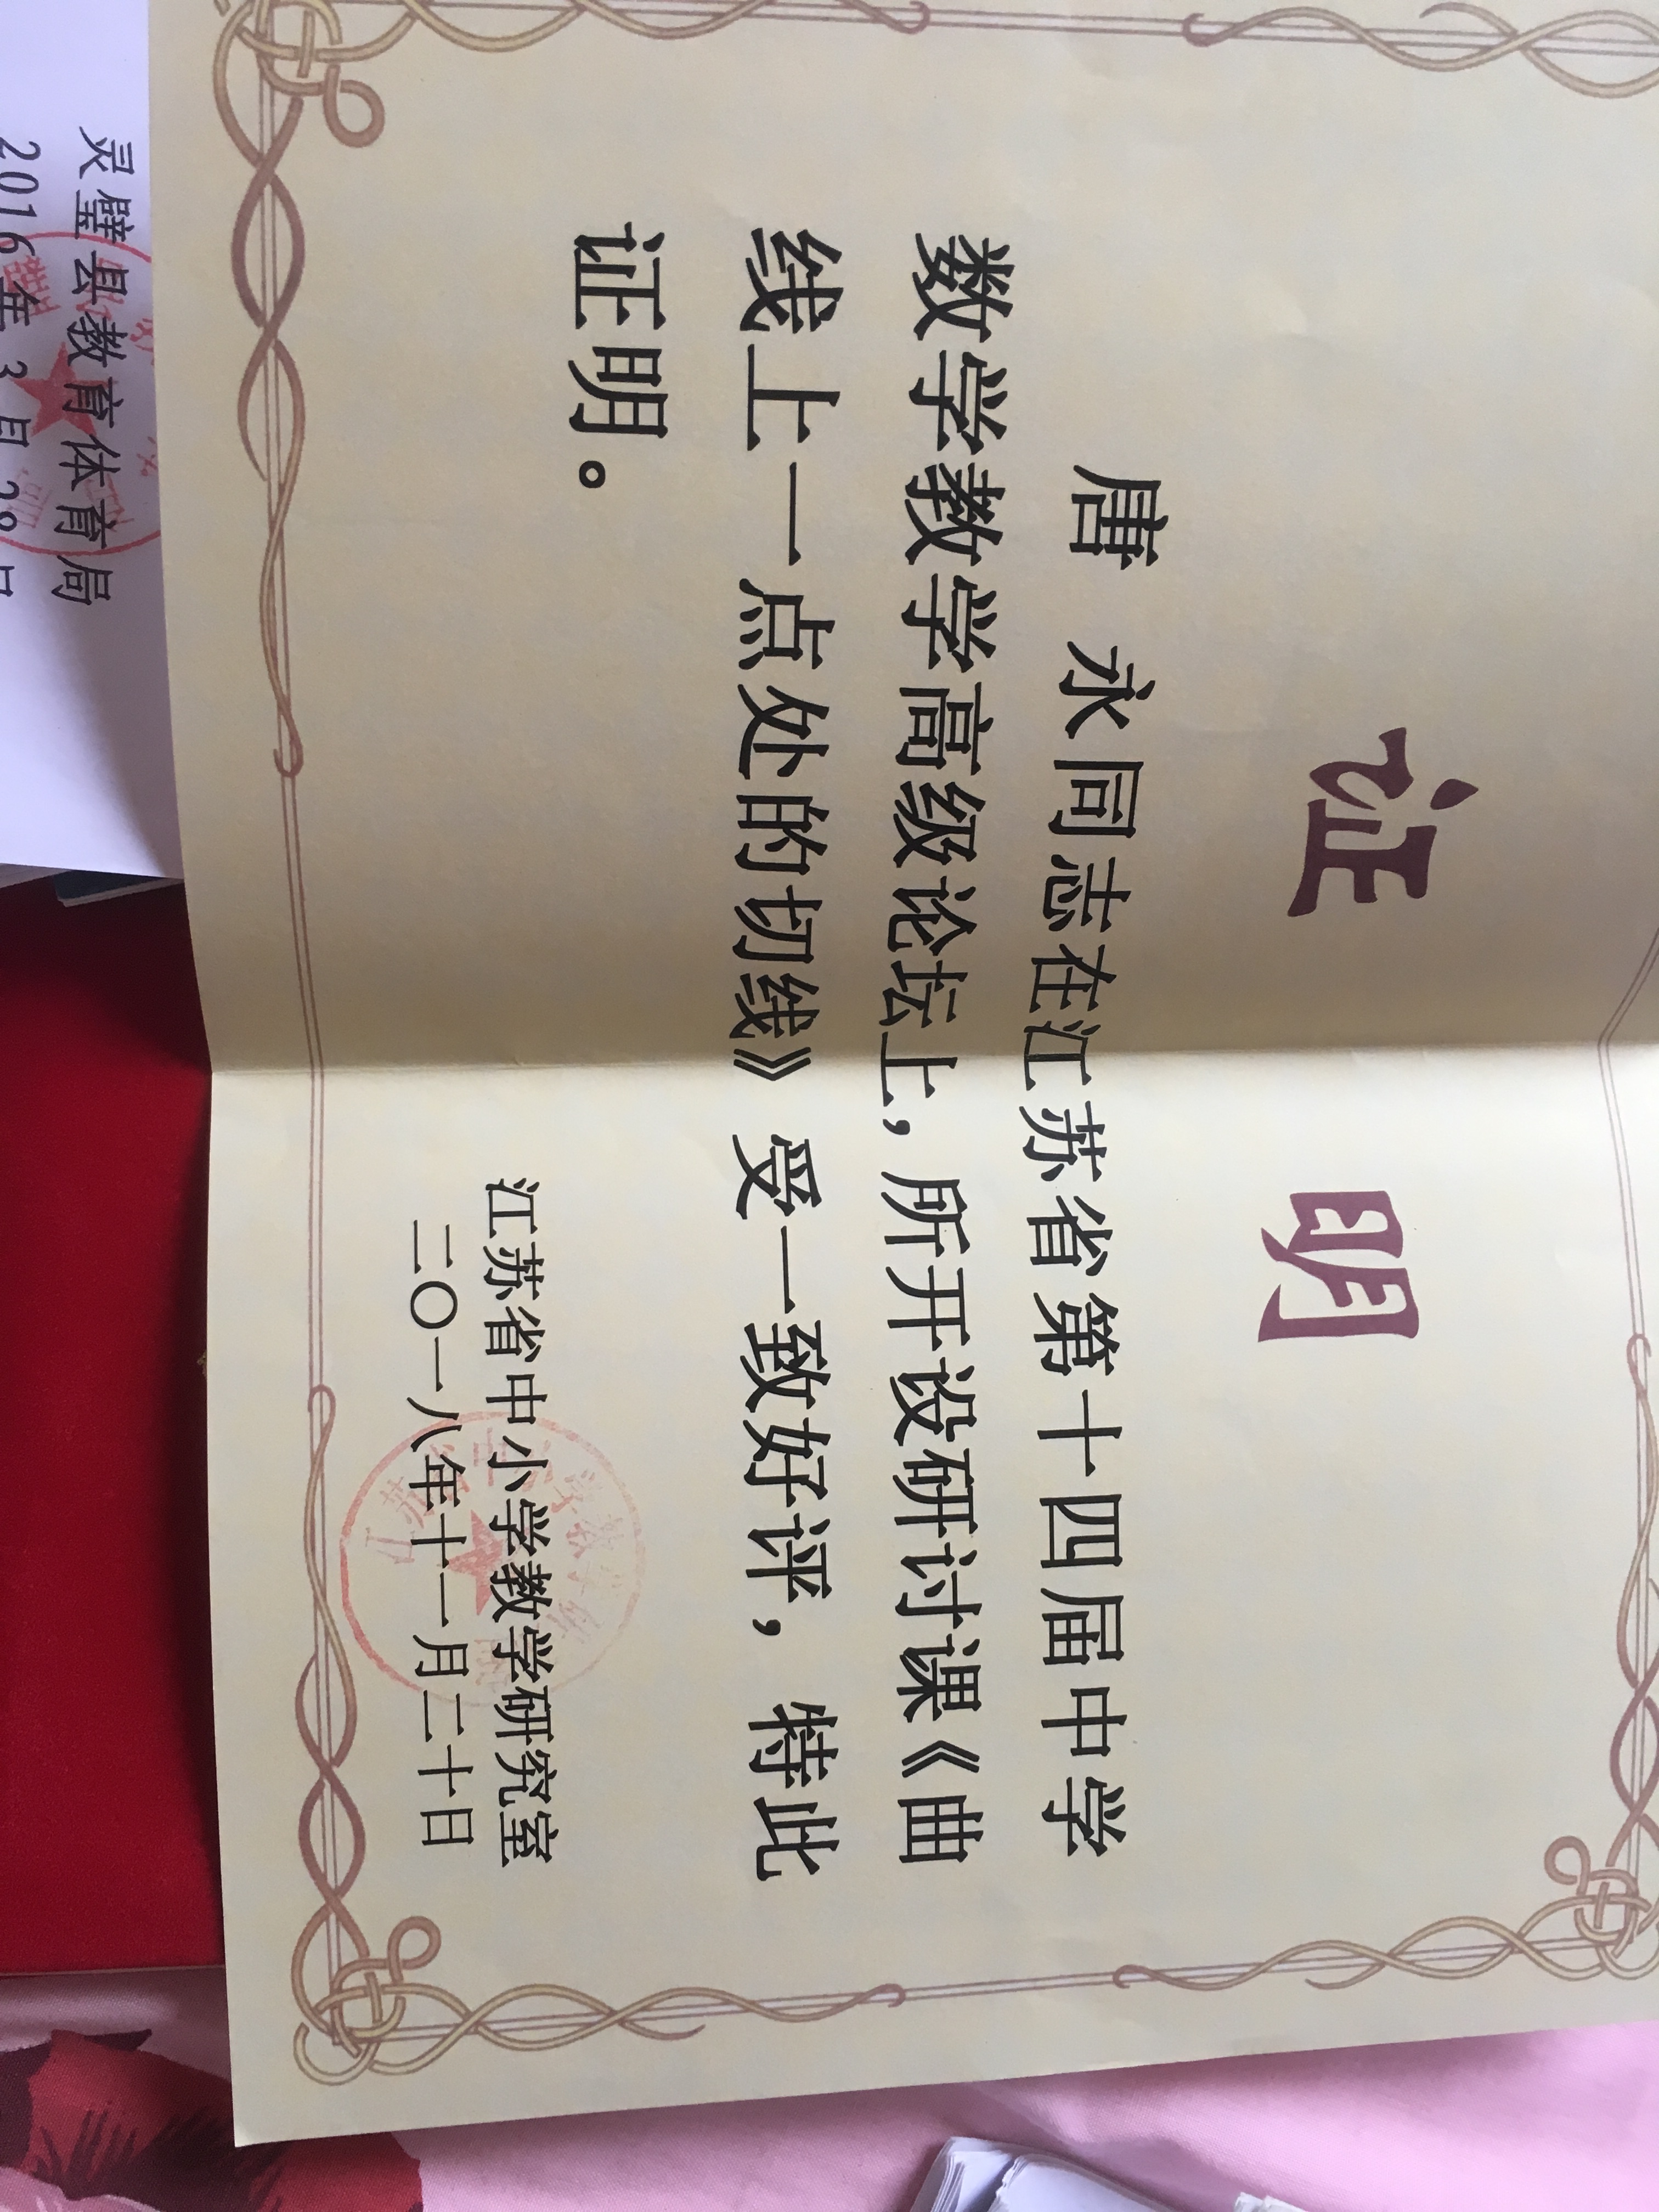 证 明
唐 永同志在江苏省第十四届中学
数学教学高级论坛上，所开设研讨课《曲
线上一点处的切线》受一致好评，特此
证明。
江苏省中小学教学研究室
二〇一八年十一月二十日
灵璧县教育体育局
2016年3月28日